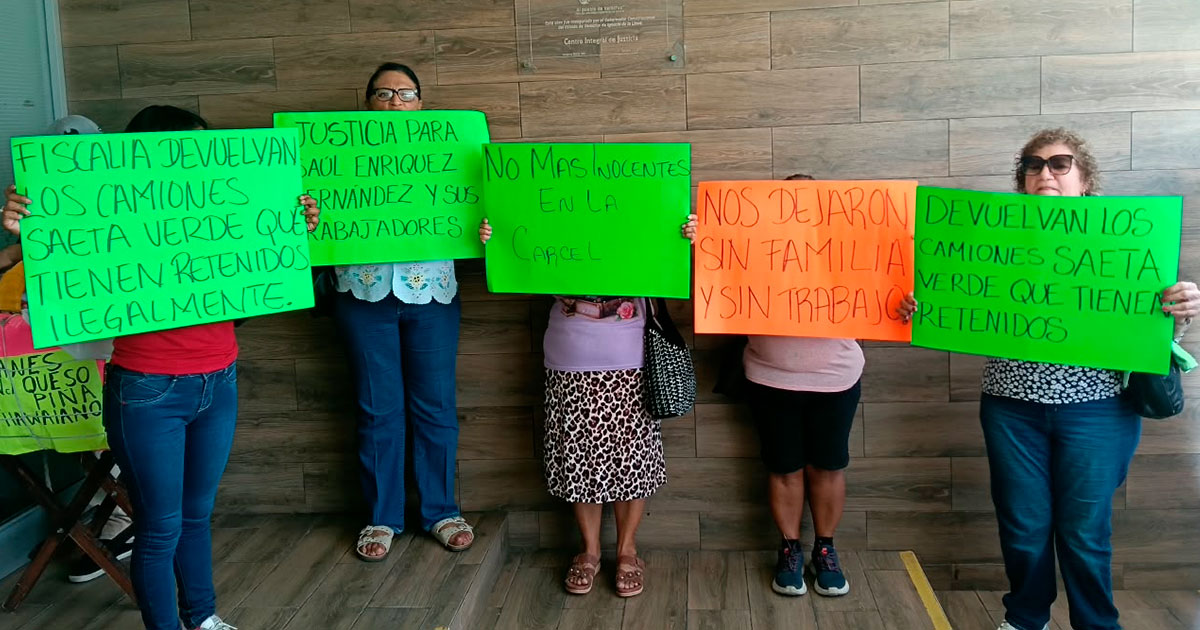 Centro Integral de Justicia
FISCALIA DEVUELVAN
LOS CAMIONES
SAETA VERDE QUE
TIENEN RETENIDOS
ILEGALMENTE.
JUSTICIA PARA
SAÚL ENRIQUEZ
HERNÁNDEZ Y SUS
TRABAJADORES
NO MAS INOCENTES
EN LA
CARCEL
NOS DEJARON
SIN FAMILIA
Y SIN TRABAJO
DEVUELVAN LOS
CAMIONES SAETA
VERDE QUE TIENEN
RETENIDOS
ANES
QUESO
PIÑA
HAWAIANO